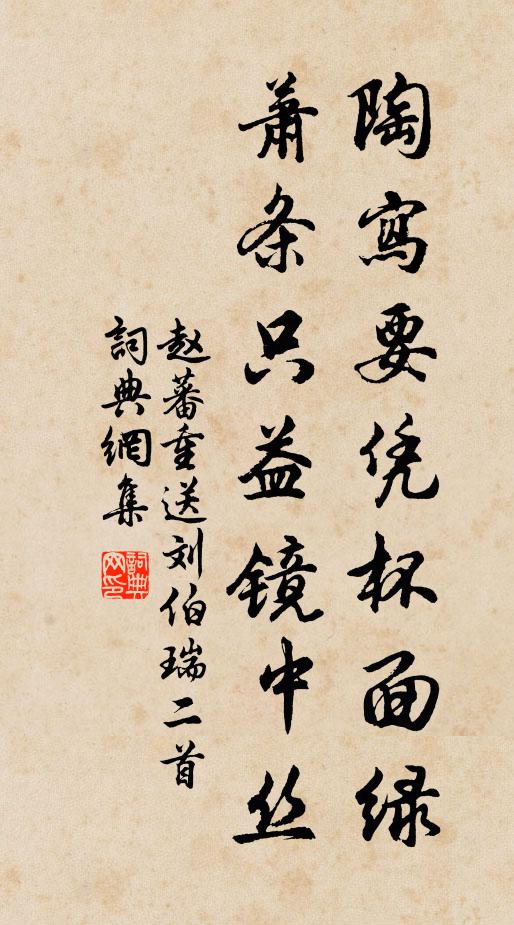 陶寫要凭杯面緑
萧条只益镜中丝
赵蕃重送刘伯瑞二首
詞典網集
詞典网印